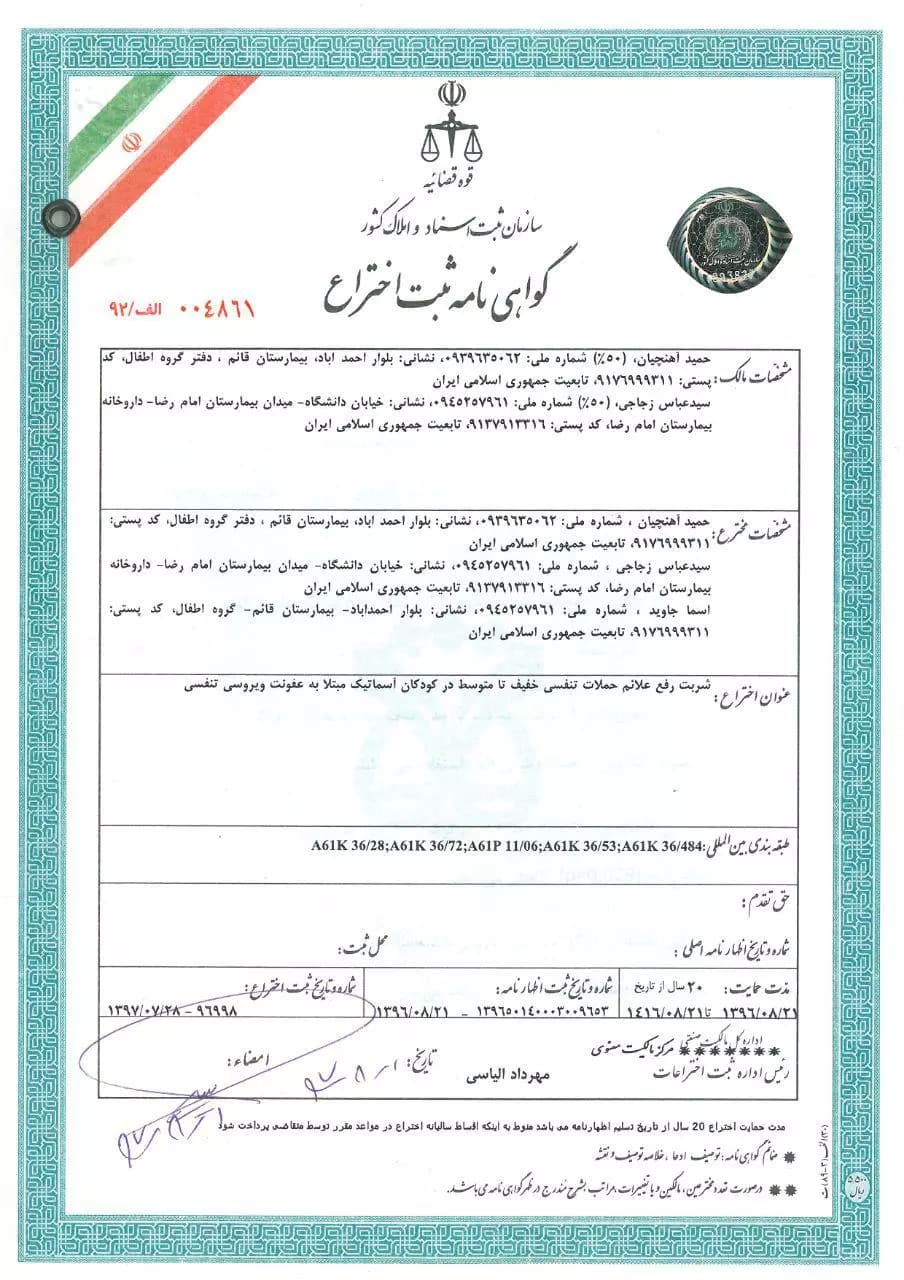 قوه قضائیه
سازمان ثبت اسناد و املاک کشور
گواهی نامه ثبت اختراع
الف/۹۲ ۰۰۴۸۶۱
مشخصات مالک:
حمید آهنچیان، (۵۰٪) شماره ملی: ۰۹۳۹۶۳۵۰۶۲، نشانی: بلوار احمد اباد، بیمارستان قائم ، دفتر گروه اطفال، کد
پستی: ۹۱۷۶۹۹۹۳۱۱، تابعیت جمهوری اسلامی ایران
سیدعباس زجاجی، (۵۰٪) شماره ملی: ۰۹۴۵۲۵۷۹۶۱، نشانی: خیابان دانشگاه- میدان بیمارستان امام رضا- داروخانه
بیمارستان امام رضا، کد پستی: ۹۱۳۷۹۱۳۳۱۶، تابعیت جمهوری اسلامی ایران
مشخصات مخترع:
حمید آهنچیان ، شماره ملی: ۰۹۳۹۶۳۵۰۶۲، نشانی: بلوار احمد اباد، بیمارستان قائم ، دفتر گروه اطفال، کد پستی:
۹۱۷۶۹۹۹۳۱۱، تابعیت جمهوری اسلامی ایران
سیدعباس زجاجی ، شماره ملی: ۰۹۴۵۲۵۷۹۶۱، نشانی: خیابان دانشگاه- میدان بیمارستان امام رضا- داروخانه
بیمارستان امام رضا، کد پستی: ۹۱۳۷۹۱۳۳۱۶، تابعیت جمهوری اسلامی ایران
اسما جاوید ، شماره ملی: ۰۹۴۵۲۵۷۹۶۱، نشانی: بلوار احمداباد- بیمارستان قائم- گروه اطفال، کد پستی:
۹۱۷۶۹۹۹۳۱۱، تابعیت جمهوری اسلامی ایران
عنوان اختراع: شربت رفع علائم حملات تنفسی خفیف تا متوسط در کودکان آسماتیک مبتلا به عفونت ویروسی تنفسی
طبقه بندی بین المللی: A61K 36/28;A61K 36/72;A61P 11/06;A61K 36/53;A61K 36/484
حق تقدم:
شماره و تاریخ اظهارنامه اصلی: محل ثبت:
مدت حمایت: ۲۰ سال از تاریخ شماره و تاریخ ثبت اظهارنامه: شماره و تاریخ ثبت اختراع:
۱۳۹۶/۰۸/۲۱ تا ۱۴۱۶/۰۸/۲۱ ۱۳۹۶۵۰۱۴۰۰۰۳۰۰۹۶۵۳ - ۱۳۹۶/۰۸/۲۱ ۹۶۹۹۸ - ۱۳۹۷/۰۷/۲۸
اداره کل مالکیت صنعتی
******* مرکز مالکیت معنوی
رئیس اداره ثبت اختراعات مهرداد الیاسی تاریخ: امضاء:
مدت حمایت اختراع 20 سال از تاریخ تسلیم اظهارنامه می باشد منوط به اینکه اقساط سالیانه اختراع در مواعد مقرر توسط متقاضی پرداخت شود
* ضمائم گواهی نامه: توصیف، ادعا، خلاصه توصیف و نقشه
** درصورت تعدد مخترعین، مالکین و یا تغییرات، مراتب بشرح مندرج در ظهر گواهی نامه می باشد.
۵۵۰۰ ریال